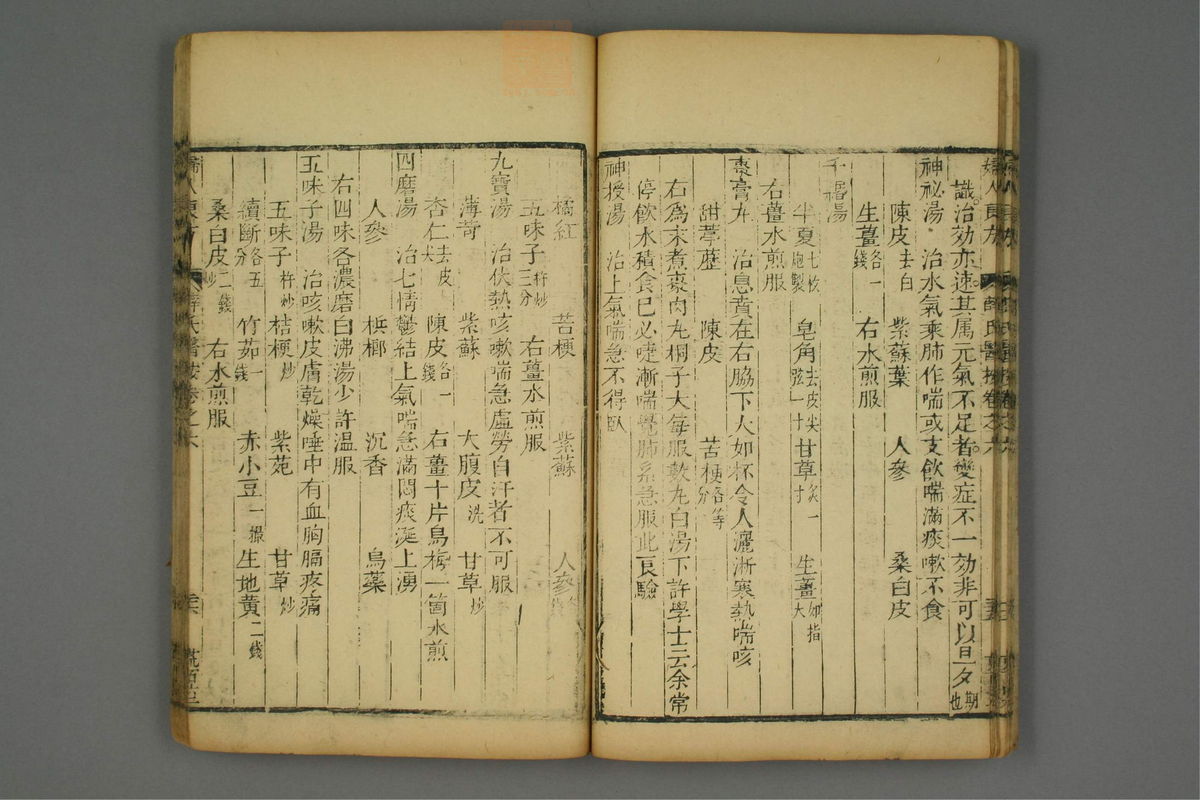 婦人良方 薛氏醫按卷之六
識治効亦速其属元氣不足者變症不一効非可以旦夕期也
神祕湯 治水氣乘肺作喘或支飲喘滿痰嗽不食
陳皮去白 紫蘇葉 人參 桑白皮
生薑各一錢 右水煎服
千緡湯
半夏七枚炮製 皂角去皮尖弦一寸 甘草炙一寸 生薑如指大
右薑水煎服
棗膏丸 治息賁在右脇下大如杯令人灑淅寒熱喘咳
甜葶藶 陳皮 苦梗各等分
右為末煮棗肉丸桐子大每服數丸白湯下許學士云余常
停飲水積食已必嚏漸喘覺肺系急服此良驗
神授湯 治上氣喘急不得臥
橘紅 苦梗 紫蘇 人參
五味子杵炒三分 右薑水煎服
九寶湯 治伏熱咳嗽喘急虛勞自汗者不可服
薄荷 紫蘇 大腹皮洗 甘草炒
杏仁去皮尖 陳皮各一錢 右薑十片烏梅一箇水煎
四磨湯 治七情鬱結上氣喘急滿悶痰涎上湧
人參 梹榔 沉香 烏藥
右四味各濃磨白沸湯少許温服
五味子湯 治咳嗽皮膚乾燥唾中有血胸膈疼痛
五味子杵炒 桔梗炒 紫菀 甘草炒
續斷各五分 竹茹一錢 赤小豆一撮 生地黄二錢
桑白皮二錢炒 右水煎服